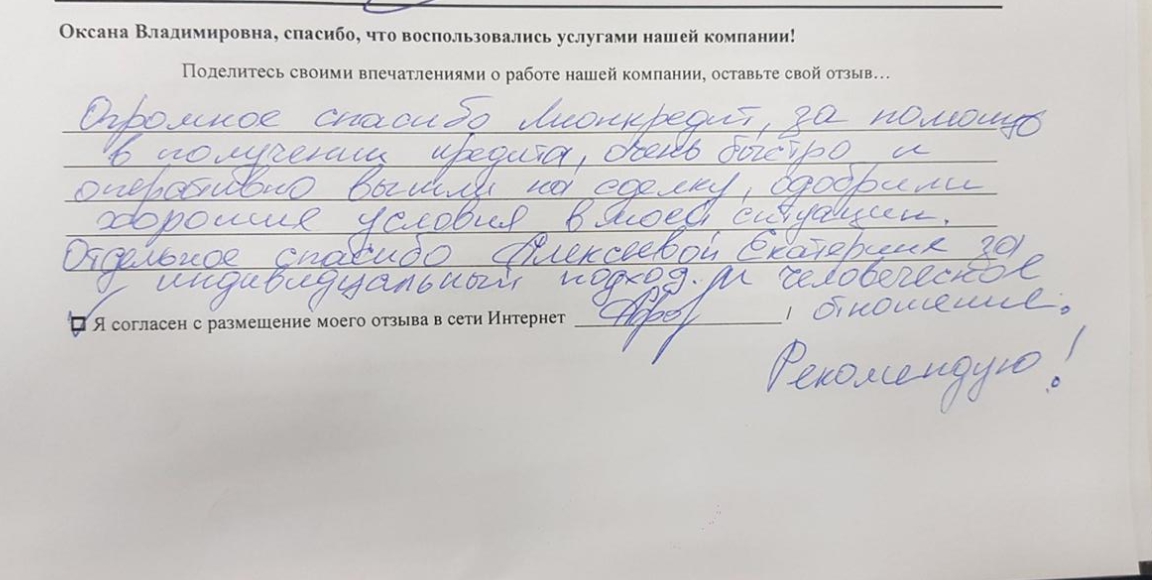 Оксана Владимировна, спасибо, что воспользовались услугами нашей компании!
Поделитесь своими впечатлениями о работе нашей компании, оставьте свой отзыв...
Огромное спасибо Лионкредит, за помощь
в получении кредита, очень быстро и
оперативно вышли на сделку, одобрили
хорошие условия в моей ситуации.
Отдельное спасибо Алексеевой Екатерине за
индивидуальный подход и человеческое
отношение.
Я согласен с размещение моего отзыва в сети Интернет
Рекомендую!